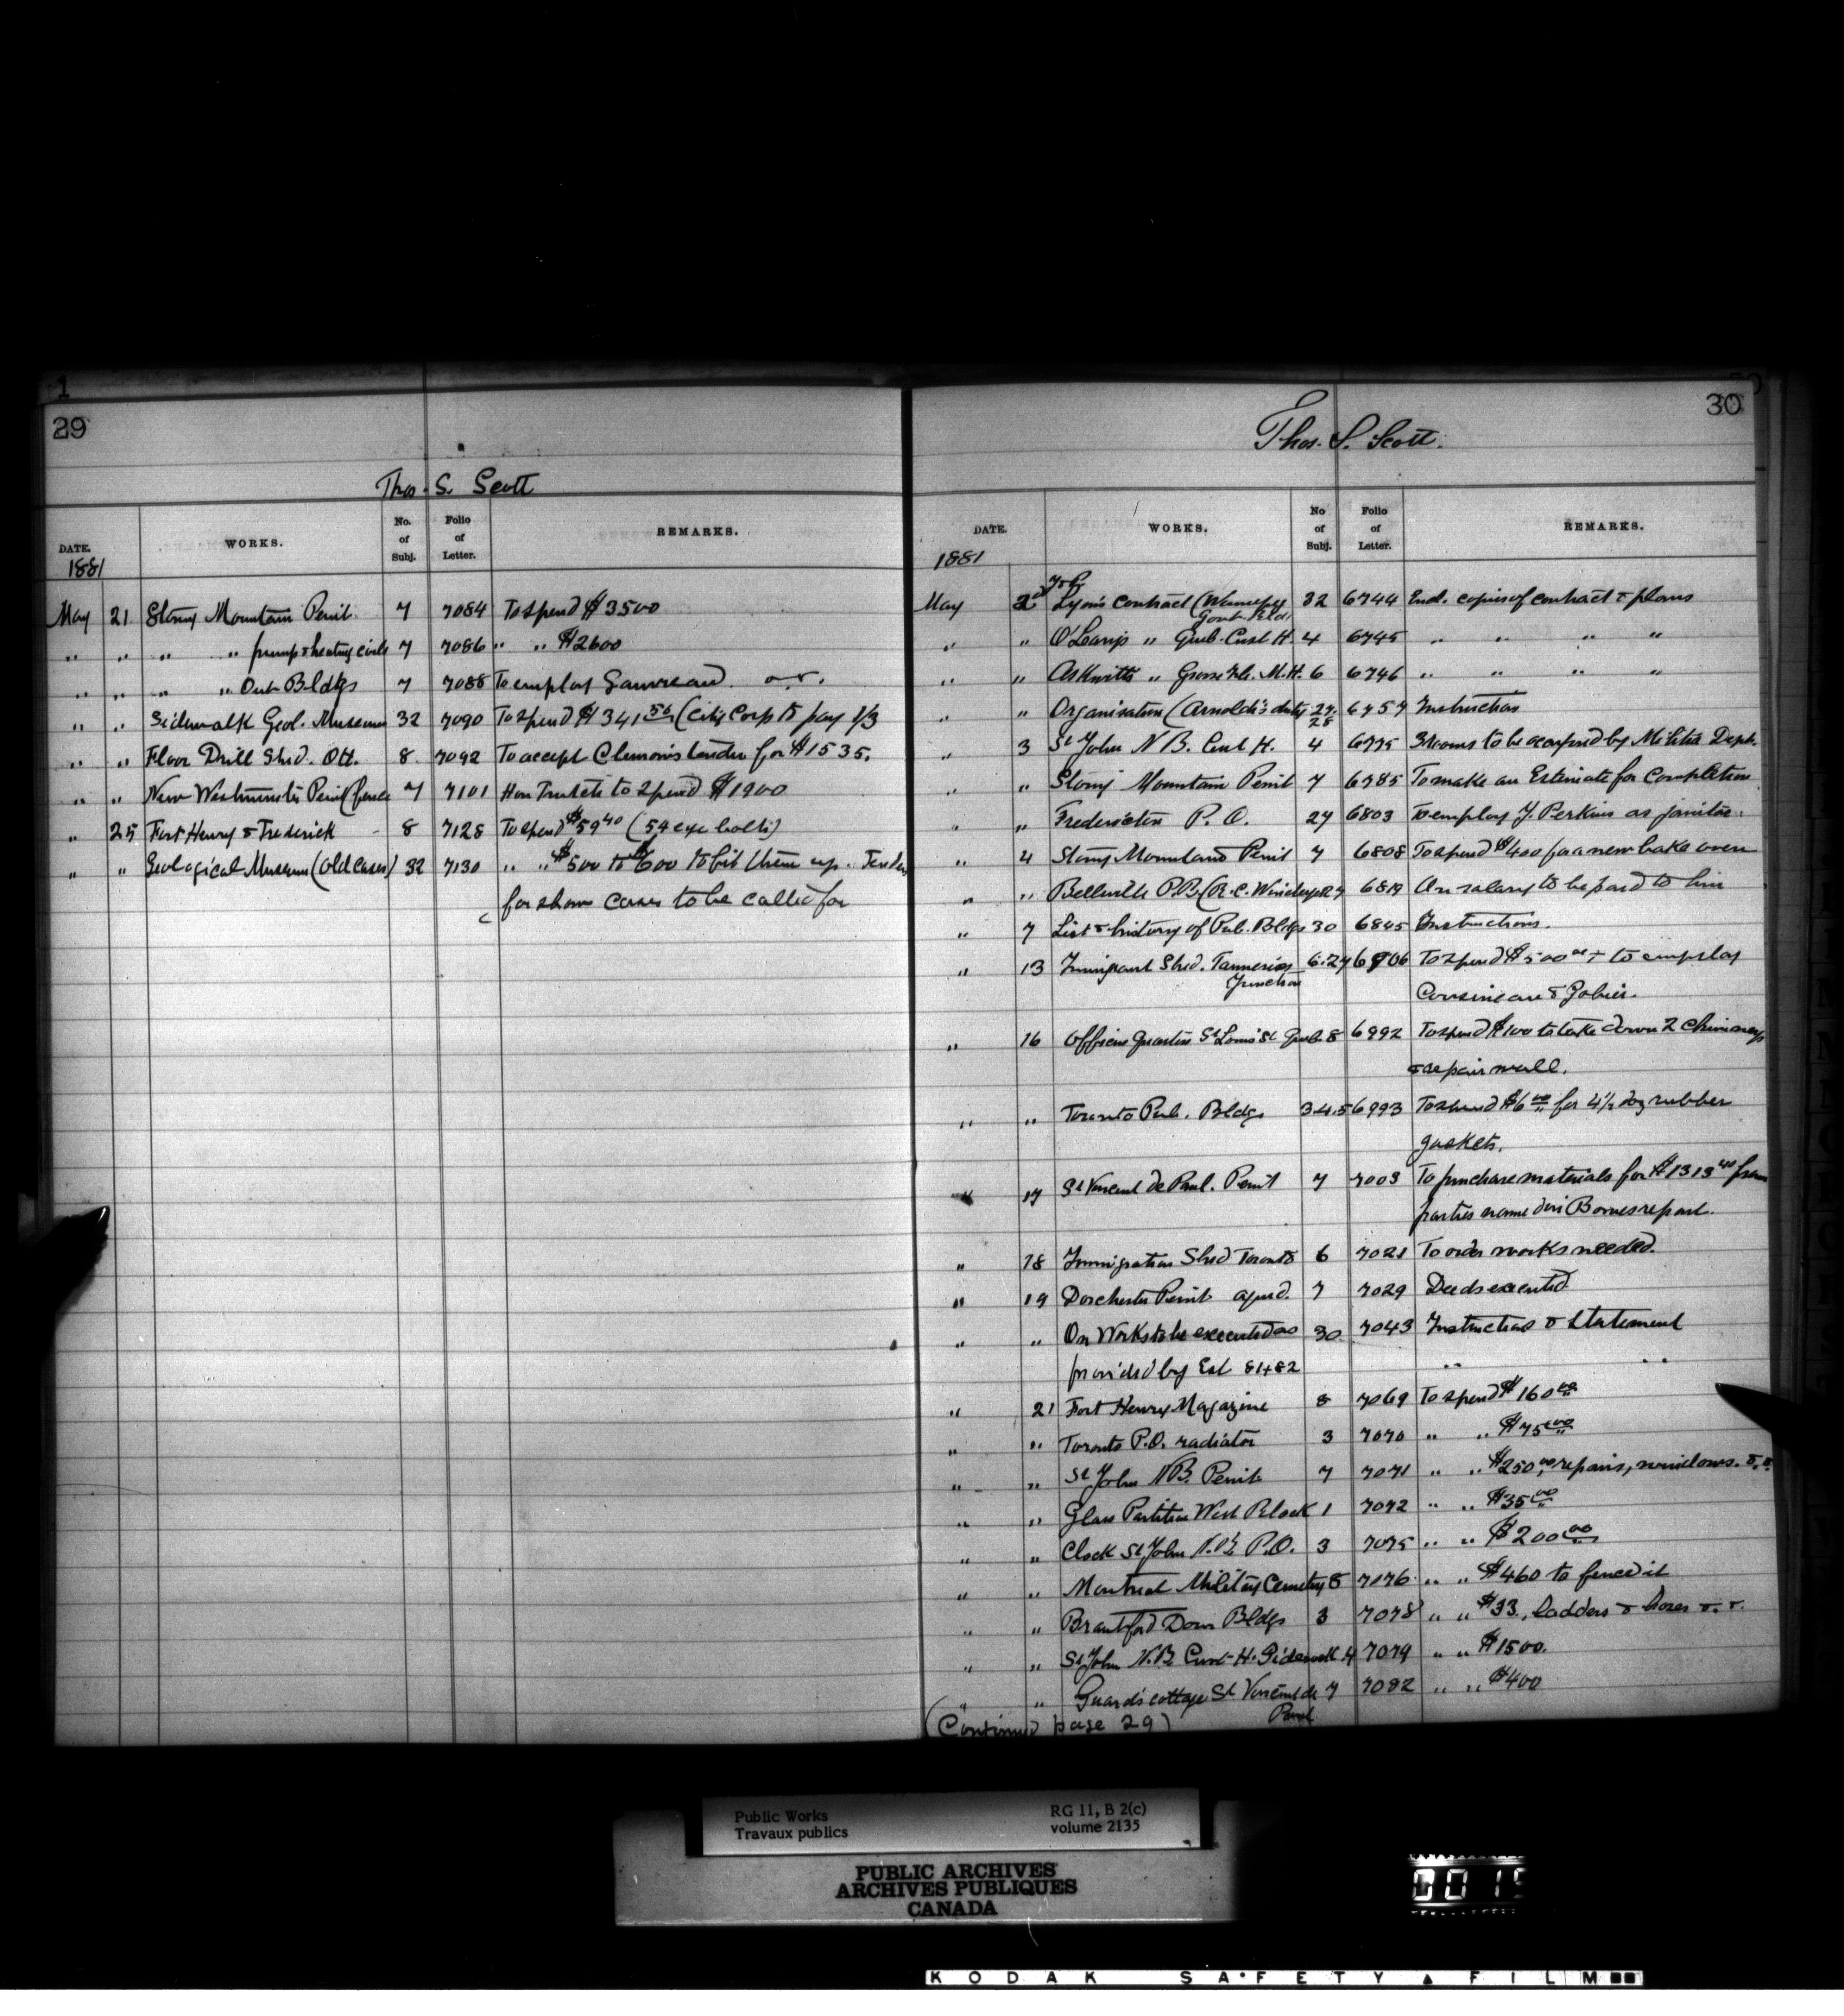 29
Thos. S. Scott
DATE. WORKS. No. of Subj. Folio of Letter. REMARKS.
1881
May 21 Stony Mountain Penit. 7 7084 To spend $3500
" " " " pump & heating 7 7086 " " $2600
" " " " Out Bldgs 7 7088 To employ Gauvreau
" " Sidewalk Geol. Museum 32 7090 To spend $341 56 (City Corp to pay 1/3
" " Floor Drill Shed. Ott. 8 7092 To accept Clemon's tender for $1535.
" " New Westminster Penit (fence 7 7101 Hon Trutch to spend $1900
" 25 Fort Henry & Frederick - 8 7128 To spend $59 40 (54 eye bolts)
" " Geological Museum (old cases) 32 7130 " " $500 to $600 to fit them up. Tender
for show cases to be called for
30
Thos. S. Scott.
DATE. WORKS. No of Subj. Folio of Letter. REMARKS.
1881
May 2d Lyon's contract (Winnipeg Govt. Bld. 32 6744 Encl. copies of contract & plans
" " O'Leary's " Queb. Cust H. 4 6745 " " " "
" " Askwith " Grosse Isle. M.H. 6 6746 " " " "
" " Organisation (Arnoldi's duty 27. 28 6757 Instruction
" 3 St John N B. Cust H. 4 6775 3 rooms to be occupied by Militia Dept.
" " Stony Mountain Penit 7 6785 To make an Estimate for Completion
" " Fredericton P. O. 27 6803 To employ J. Perkins as janitor.
" 4 Stony Mountain Penit 7 6808 To spend $400 for a new bake oven
" " Belleville P.B. (R.C. 27 6819 On salary to be paid to him
" 7 List & history of Pub. Bldgs 30 6845 Instructions.
" 13 Immigrant Shed. Tanneries Junction 6.27 6906 To spend $500 00 + to employ
Cousineau &
" 16 Officers Quarters St Louis St Queb. 8 6992 To spend $100 to take down 2 chimneys
& repair wall.
" " Toronto Pub. Bldgs 3.4.5 6993 To spend $6 00 for 4½ doz rubber
gaskets.
" 17 St Vincent de Paul. Penit 7 7003 To purchase materials for $1313 40 from
parties named in Bowes report.
" 18 Immigration Shed Toronto 6 7021 To order works needed.
" 19 Dorchester Penit aqued. 7 7029 Deeds executed
" " On Works to be executed as 30 7043 Instruction & Statement
provided by Est 81+82 " "
" 21 Fort Henry Magazine 8 7069 To spend $160 00
" " Toronto P.O. radiator 3 7070 " " $75 00
" " St John N.B. Penit 7 7071 " " $250, 00 repairs, windows. &.
" " Glass Partition West Block 1 7072 " " $35 00
" " Clock St John N.B. P.O. 3 7075 " " $200 00
" " Montreal Military Cemetery 8 7076 " " $460 to fence it
" " Brantford Dom Bldgs 3 7078 " " $33., ladders & hoses
" " St John N.B. Cust-H. Sidewalk 4 7079 " " $1500.
" " Guard's cottage St Vincent de Paul 7 7082 " " $400
(Continued page 29)
Public Works
Travaux publics
RG 11, B 2(c)
volume 2135
PUBLIC ARCHIVES
ARCHIVES PUBLIQUES
CANADA
KODAK SAFETY FILM